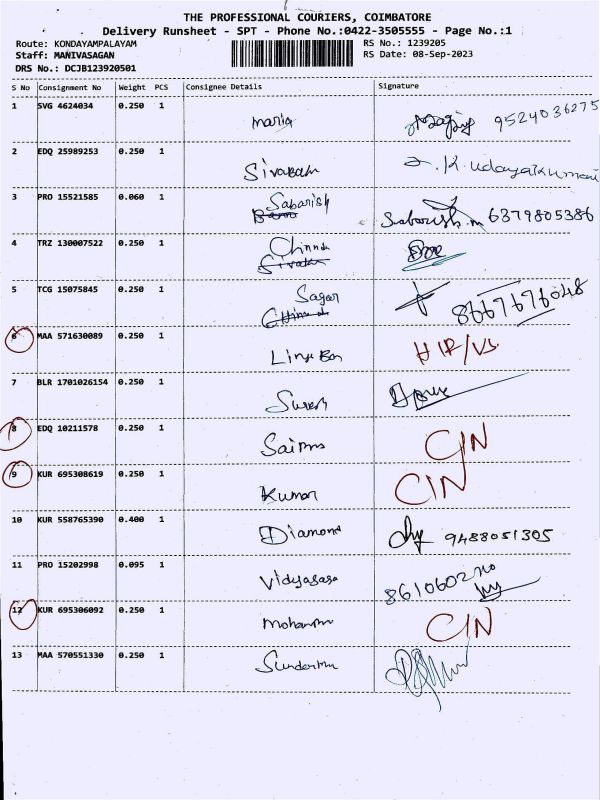 THE PROFESSIONAL COURIERS, COIMBATORE
Delivery Runsheet - SPT - Phone No.:0422-3505555 - Page No.:1
Route: KONDAYAMPALAYAM
Staff: MANIVASAGAN
DRS No.: DCJB123920501
RS No.: 1239205
RS Date: 08-Sep-2023
S No Consignment No Weight PCS Consignee Details Signature
1 SVG 4624034 0.250 1 maria 9524036275
2 EDQ 25989253 0.250 1 K. Udayakumari
3 PRO 15521585 0.060 1 Sabarish Sabarish.m 6379805386
4 TRZ 130007522 0.250 1 Chinna
5 TCG 15075845 0.250 1 Sagar 8667676048
6 MAA 571630089 0.250 1
7 BLR 1701026154 0.250 1 Suresh
8 EDQ 10211578 0.250 1 CIN
9 KUR 695308619 0.250 1 Kumar CIN
10 KUR 558765390 0.400 1 Diamond 9488051305
11 PRO 15202998 0.095 1 8610602
12 KUR 695306092 0.250 1 CIN
13 MAA 570551330 0.250 1